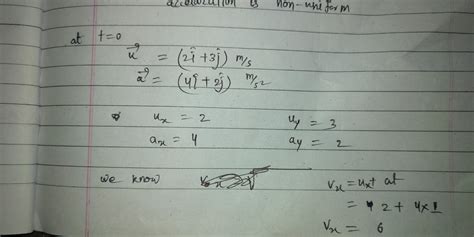 acceleration is non-uniform
at t=0
u⃗ = (2î+3ĵ) m/s
a⃗ = (4î+2ĵ) m/s²
uₓ = 2 u_y = 3
aₓ = 4 a_y = 2
we know
vₓ = uₓ + at
= 2 + 4x1
vₓ = 6